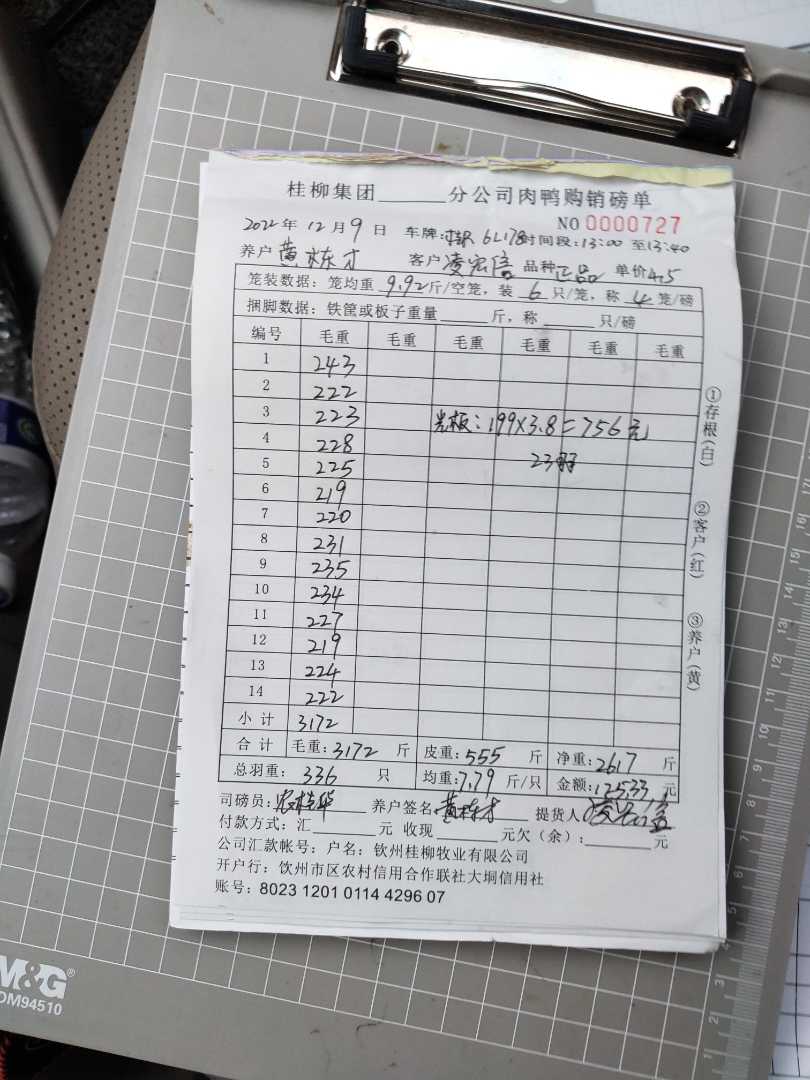 桂柳集团______分公司肉鸭购销磅单
NO 0000727
2022年 12月 9日 车牌: 6L178 时间段: 13:00 至 13:40
养户 黄栋才 客户 凌宏信 品种 正品 单价 4.5
笼装数据: 笼均重 9.92 斤/空笼, 装 6 只/笼, 称 4 笼/磅
捆脚数据: 铁筐或板子重量______斤, 称______只/磅
编号 毛重 毛重 毛重 毛重 毛重 毛重
1 243
2 222
3 223 光板: 199×3.8=756元
4 228
5 225 23羽
6 219
7 220
8 231
9 235
10 234
11 227
12 219
13 224
14 222
小计 3172
合计 毛重: 3172 斤 皮重: 555 斤 净重: 2617 斤
总羽重: 336 只 均重: 7.79 斤/只 金额: 12533 元
司磅员: 养户签名: 黄栋才 提货人
付款方式: 汇______元 收现______元欠(余): ______元
公司汇款帐号: 户名: 钦州桂柳牧业有限公司
开户行: 钦州市区农村信用合作联社大垌信用社
账号: 8023 1201 0114 4296 07
①存根(白)
②客户(红)
③养户(黄)
M&G®
DM94510